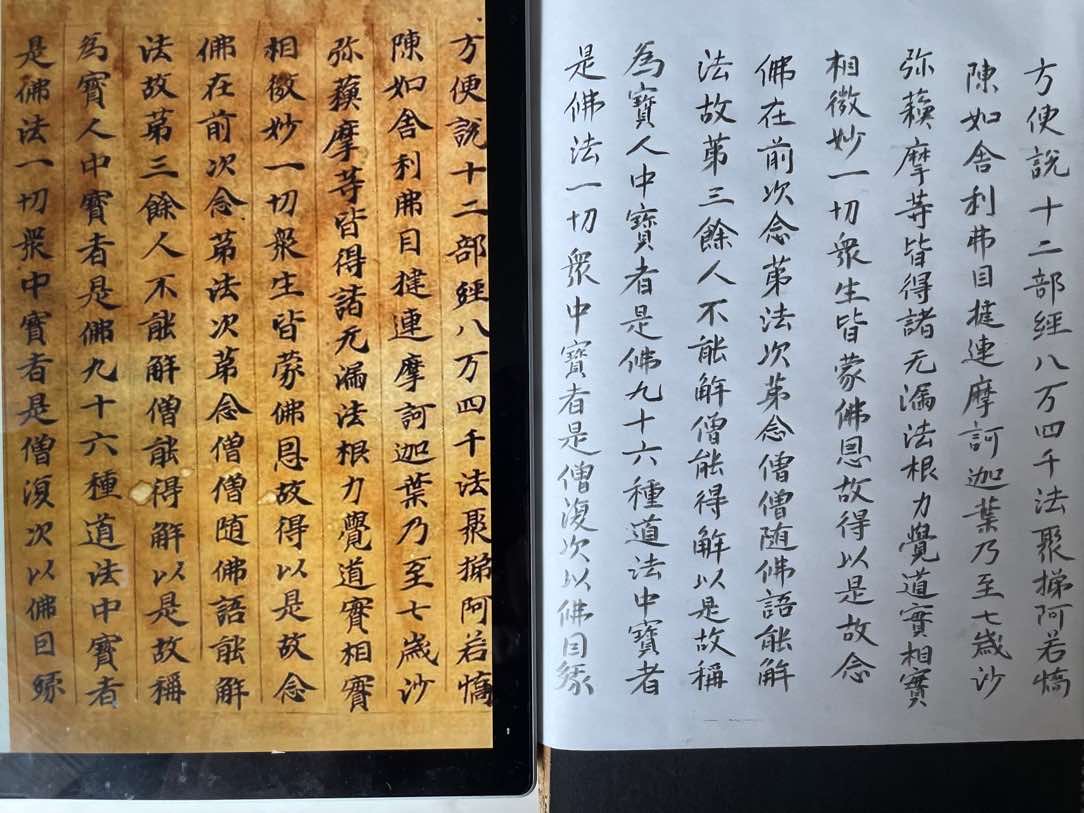 方便說十二部經八万四千法聚阿若憍
陳如舍利弗目揵連摩訶迦葉乃至七歲沙
弥蘓摩等皆得諸无漏法根力覺道實相實
相微妙一切衆生皆蒙佛恩故得以是故念
佛在前次念苐法次苐念僧僧随佛語能解
法故苐三餘人不能解僧能得解以是故稱
為寶人中寶者是佛九十六種道法中寶者
是佛法一切衆中寶者是僧復次以佛因緣
方便說十二部經八万四千法聚阿若憍
陳如舍利弗目揵連摩訶迦葉乃至七歲沙
弥蘓摩等皆得諸无漏法根力覺道實相實
相微妙一切衆生皆蒙佛恩故得以是故念
佛在前次念苐法次苐念僧僧随佛語能解
法故苐三餘人不能解僧能得解以是故稱
為寶人中寶者是佛九十六種道法中寶者
是佛法一切衆中寶者是僧復次以佛因緣